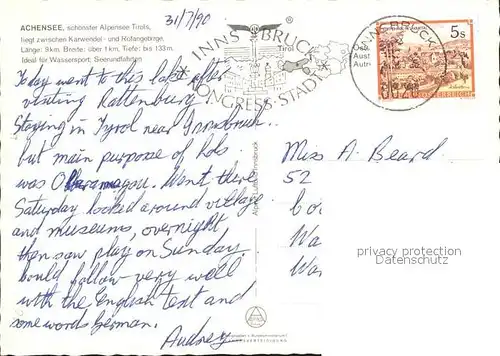 ACHENSEE, schönster Alpensee Tirols,
liegt zwischen Karwendel- und Rofangebirge.
Länge: 9km, Breite: über 1km, Tiefe: bis 133m.
Ideal für Wassersport, Seerundfahrten
31/7/90
INNSBRUCK
Tirol
KONGRESS-STADT
INNSBRUCK
6020
5s
Today went to this lake after
visiting Rattenburg.
Staying in Tyrol near Innsbruck.
but main purpose of hols
was Went there
Saturday looked around village
and museums, overnight,
then saw play on Sunday.
Could follow very well
with the English text and
some words German.
Audrey
Miss A. Beard.
52
Wa
Wa
privacy protection
Datenschutz